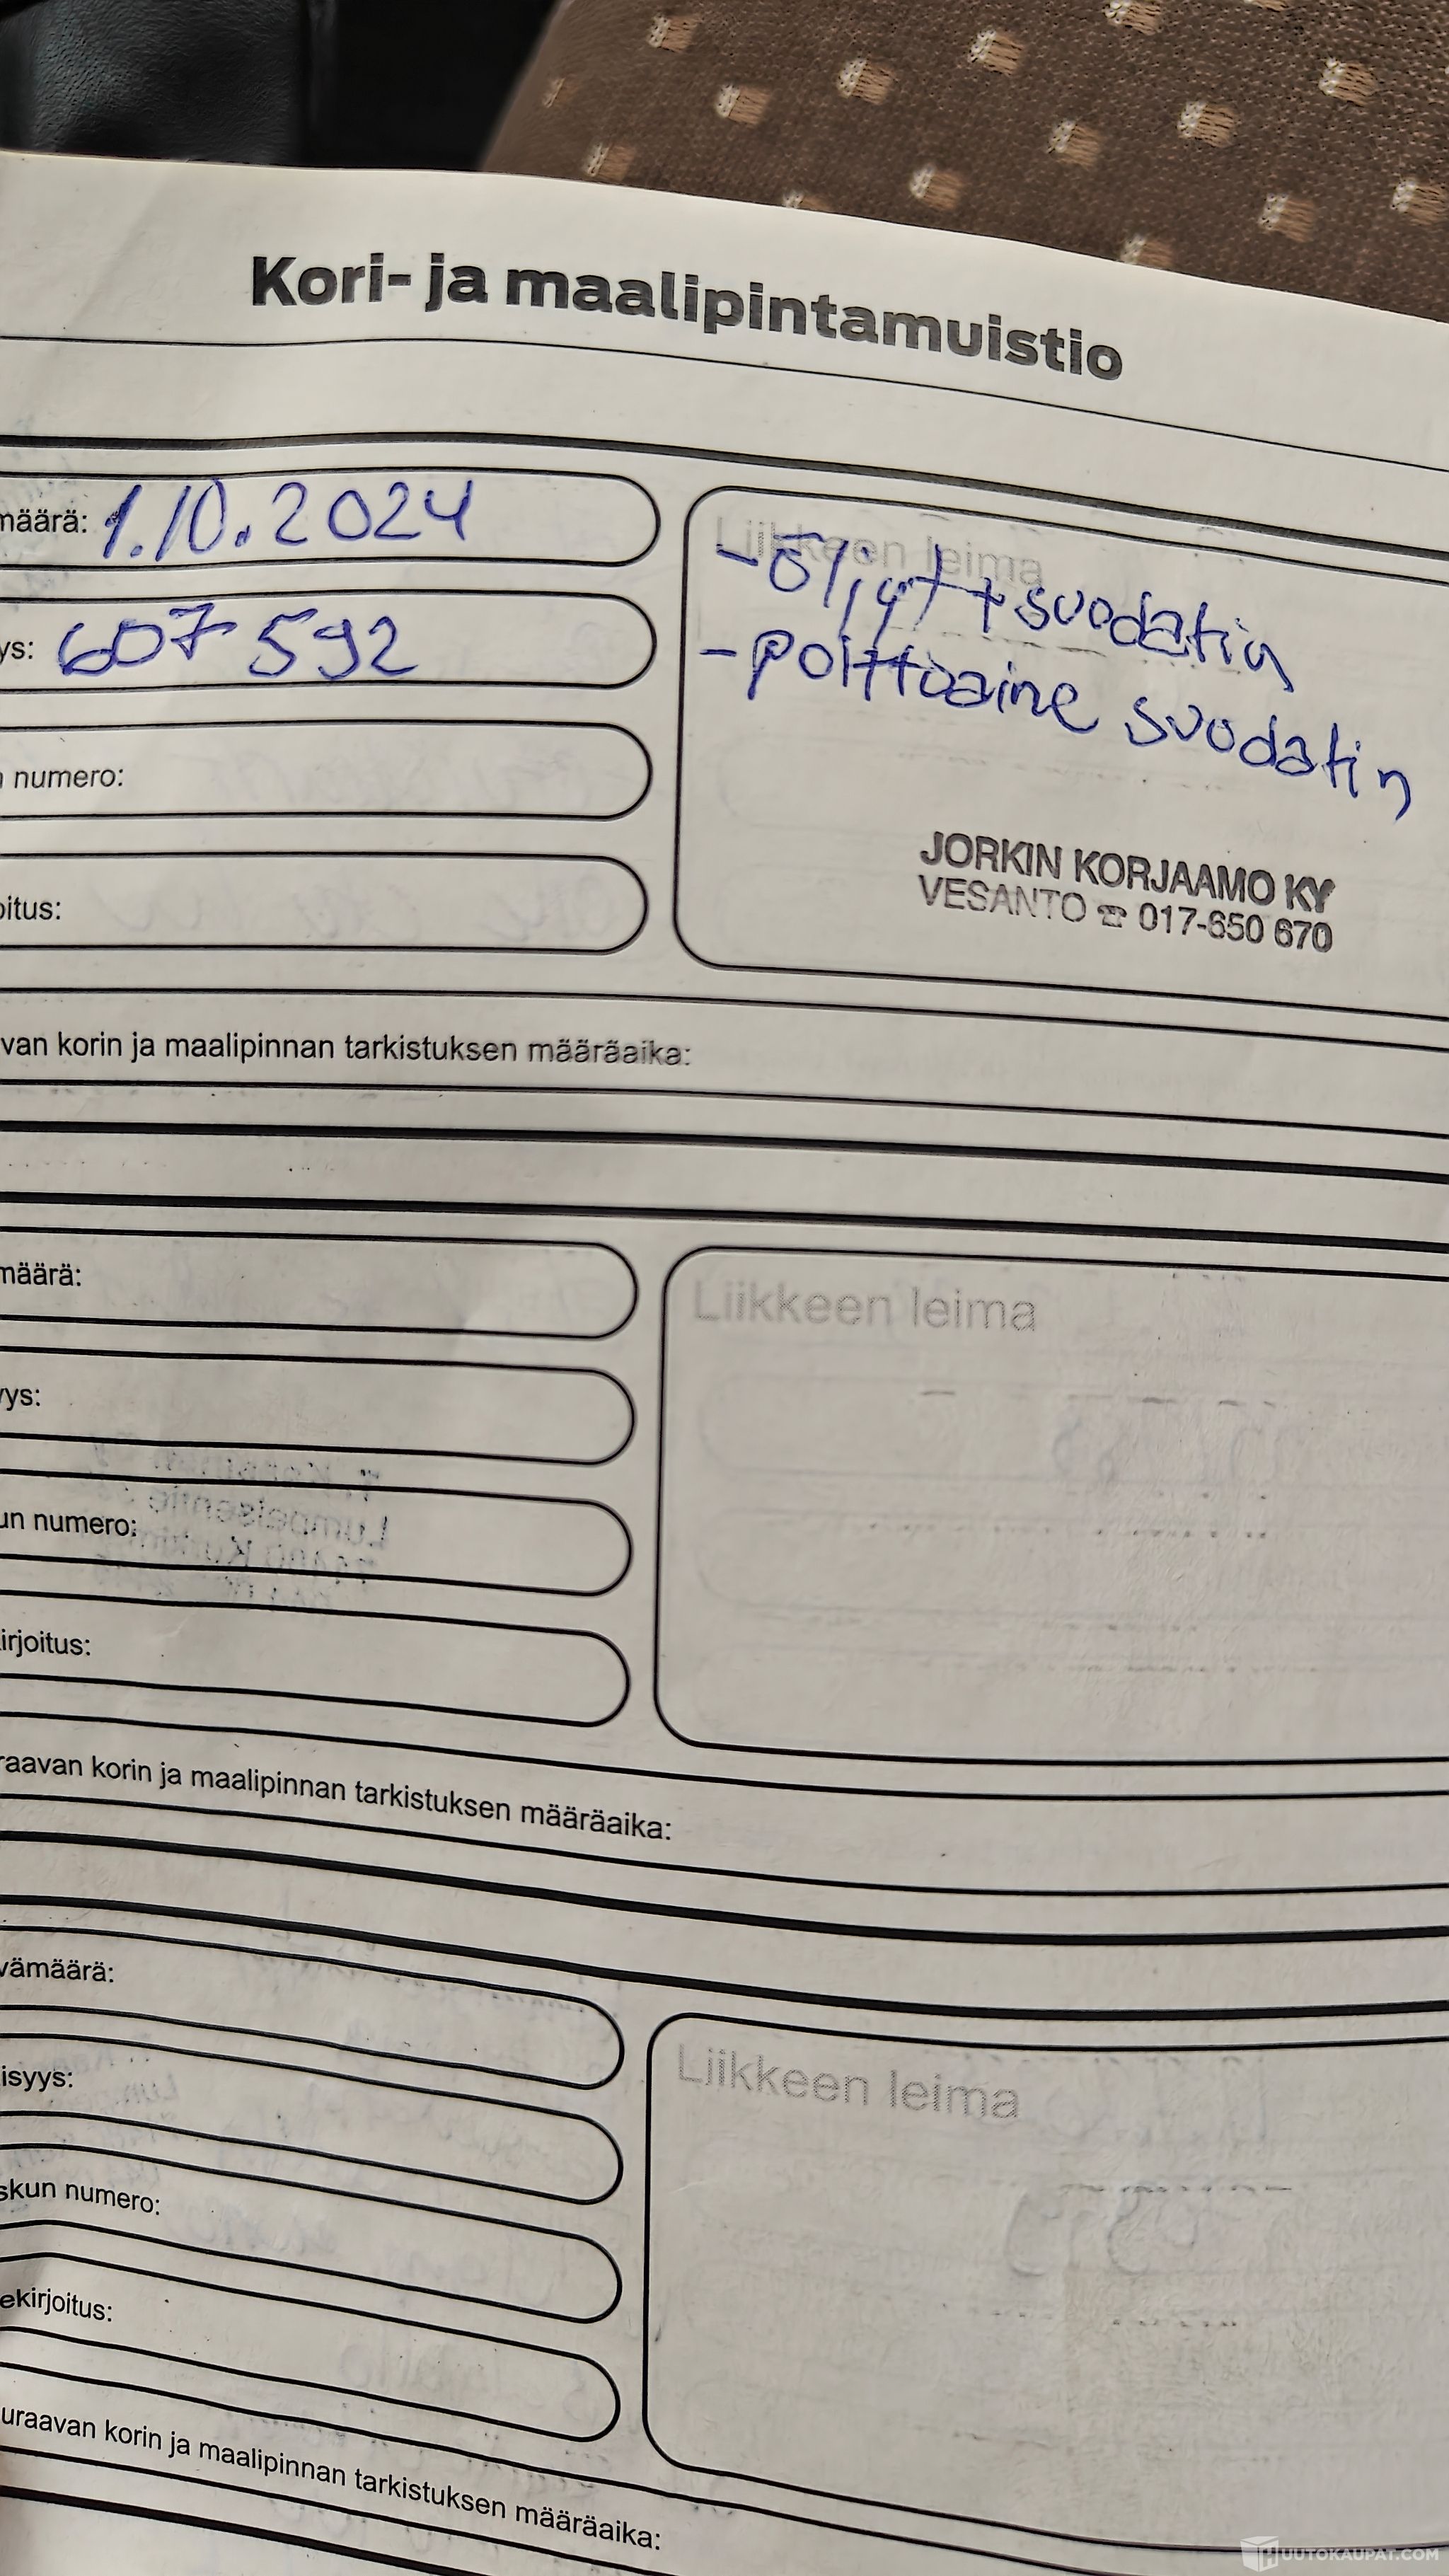 Kori- ja maalipintamuistio
määrä: 1.10.2024
Liikkeen leima
- Öljyt + suodatin
ys: 607 592
- polttoaine suodatin
numero:
JORKIN KORJAAMO KY
VESANTO ☎ 017-650 670
oitus:
van korin ja maalipinnan tarkistuksen määräaika:
määrä:
Liikkeen leima
ys:
un numero:
irjoitus:
raavan korin ja maalipinnan tarkistuksen määräaika:
vämäärä:
Liikkeen leima
isyys:
skun numero:
ekirjoitus:
uraavan korin ja maalipinnan tarkistuksen määräaika:
HUUTOKAUPAT.COM